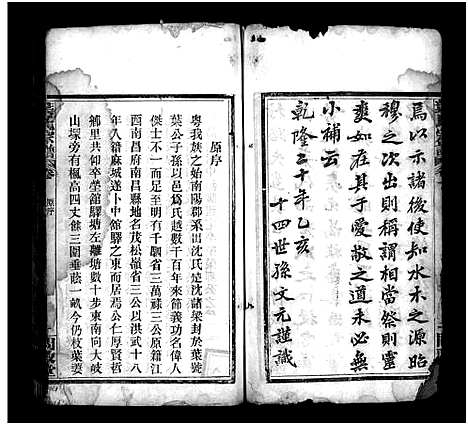 焉以示諸後使知水木之源昭
穆之次出則稱謂相當祭則靈
爽如在其于愛敬之道未必無
小補云
乾隆二十年乙亥
十四世孫文元謹識
原序
粵我族之始南陽郡系出沈氏楚沈諸梁封於葉號
葉公子孫以邑為氏越數千百年來節義功名偉人
傑士不一而足至千
省三萬
三公原籍江
西南昌府南昌縣地名茂松嶺省三公以洪武十八
年入籍麻城遂卜中館驛之東而居焉公仁厚賢哲
鄉里共仰卒塋館驛塘左離塘數十步東南向大岐
山塚旁有楓高四丈餘三圍垂蔭一畝今仍枝葉
原序